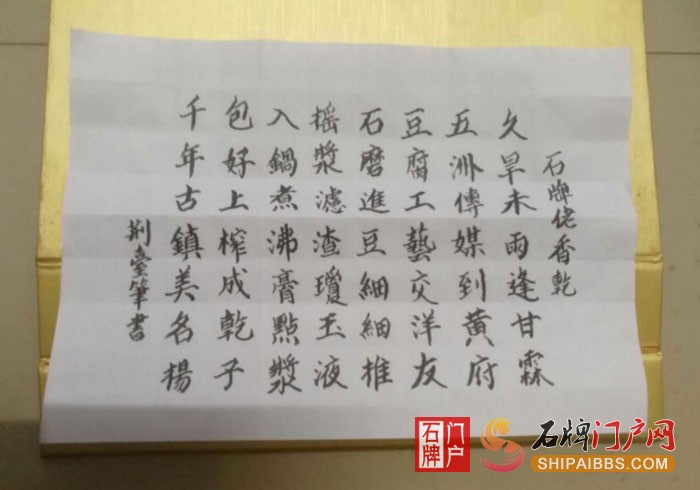 石牌佬香乾
久旱未雨逢甘霖
五洲傳媒到黃府
豆腐工藝交洋友
石磨進豆細細推
摇漿濾渣瓊玉液
入鍋煮沸膏點漿
包好上榨成乾子
千年古鎮美名楊
荆臺筆書
石牌
门户
石牌门户网
SHIPAIBBS.COM